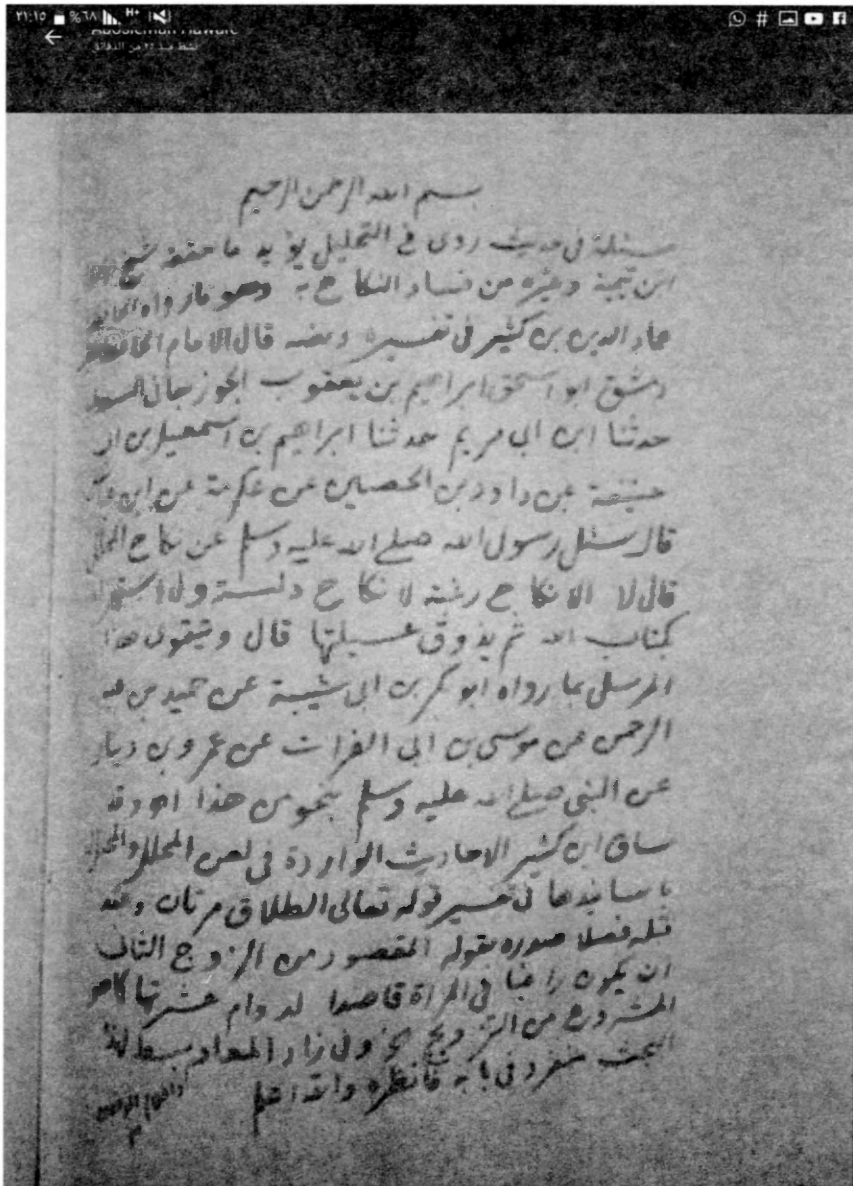 ٢١:١٥ %٦٨ H+
Abosleman Haware
نشط منذ ٢٥ من الدقائق
بسم الله الرحمن الرحيم
مسئلة في حديث روى في التحليل يؤيد ما حققه شيخ
ابن تيمية وغيره من فساد النكاح به وهو ما رواه الحافظ
عماد الدين بن كثير في تفسيره ونصه قال الامام الحافظ
دمشق ابو اسحق ابراهيم بن يعقوب الجوزجاني السعدي
حدثنا ابن ابي مريم حدثنا ابراهيم بن اسمعيل بن ابي
حنيفة عن داود بن الحصين عن عكرمة عن ابن عباس
قال سئل رسول الله صلى الله عليه وسلم عن نكاح المحلل
قال لا الا نكاح رغبة لا نكاح دلسة ولا استهزاء
بكتاب الله ثم يذوق عسيلتها قال ويتقوى هذا
المرسل بما رواه ابو بكر بن ابي شيبة عن حميد بن عبد
الرحمن عن موسى بن ابي الفرات عن عمرو بن دينار
عن النبي صلى الله عليه وسلم بنحو من هذا اهـ وقد
ساق ابن كثير الاحاديث الواردة في لعن المحلل والمحلل
باسانيدها في تفسير قوله تعالى الطلاق مرتان وعقد
قبله فصلا صدره بقوله المقصود من الزوج الثاني
ان يكون راغبا في المراة قاصدا لدوام عشرتها كما هو
المشروع من التزويج الخ وفي زاد المعاد بسط لهذا
البحث منفرد في بابه فانظره والله اعلم